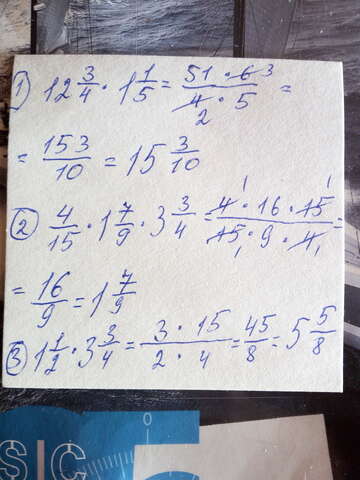 1) 12 3/4 · 1 1/5 = 51 · 6 3 / 4 2 · 5 =
= 153/10 = 15 3/10
2) 4/15 · 1 7/9 · 3 3/4 = 4 1 · 16 · 15 1 / 15 1 · 9 · 4 1 =
= 16/9 = 1 7/9
3) 1 1/2 · 3 3/4 = 3 · 15 / 2 · 4 = 45/8 = 5 5/8
SIC